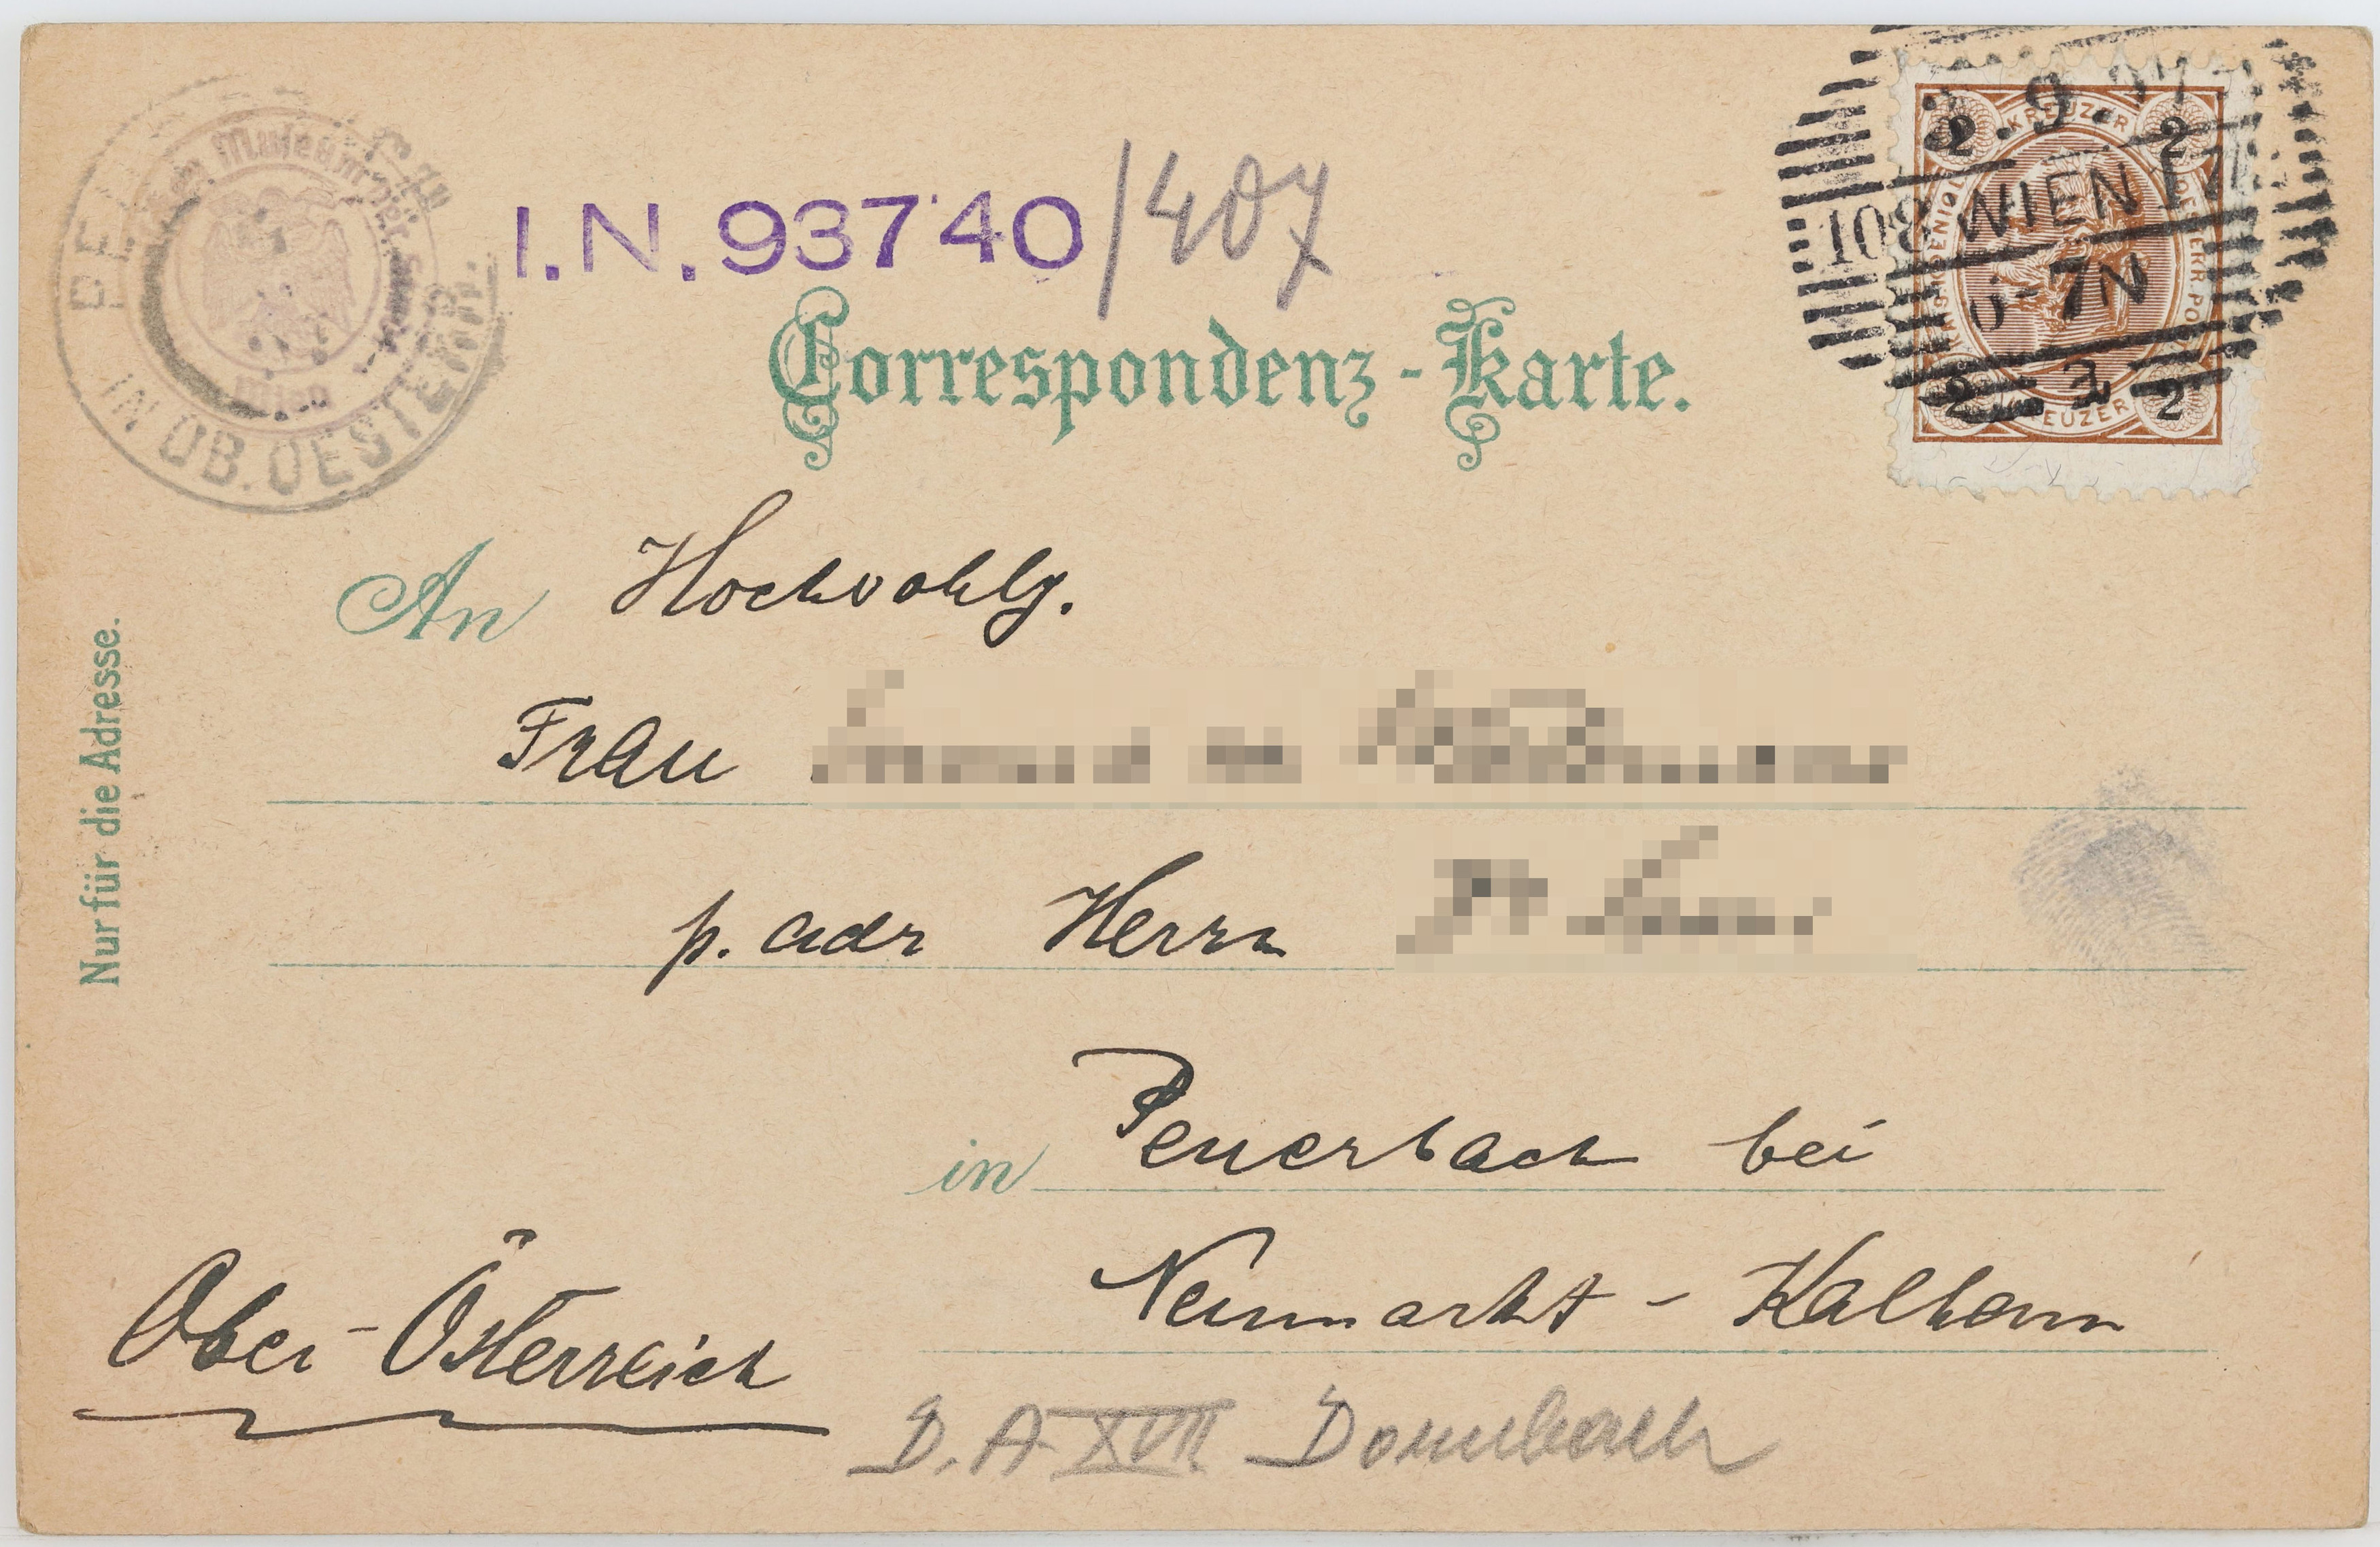 I.N. 93740/407
Correspondenz-Karte.
2 KREUZER 2
9. 97
108 WIEN 17
6-7N
2 KREUZER 2
IN OB. OESTERR.
Museum der Stadt
Wien
An Hochwohlg.
Frau
p. adr Herrn
in Peuerbach bei
Neumarkt - Kalham
Ober-Österreich
D. A XVII Dornbach
Nur für die Adresse.